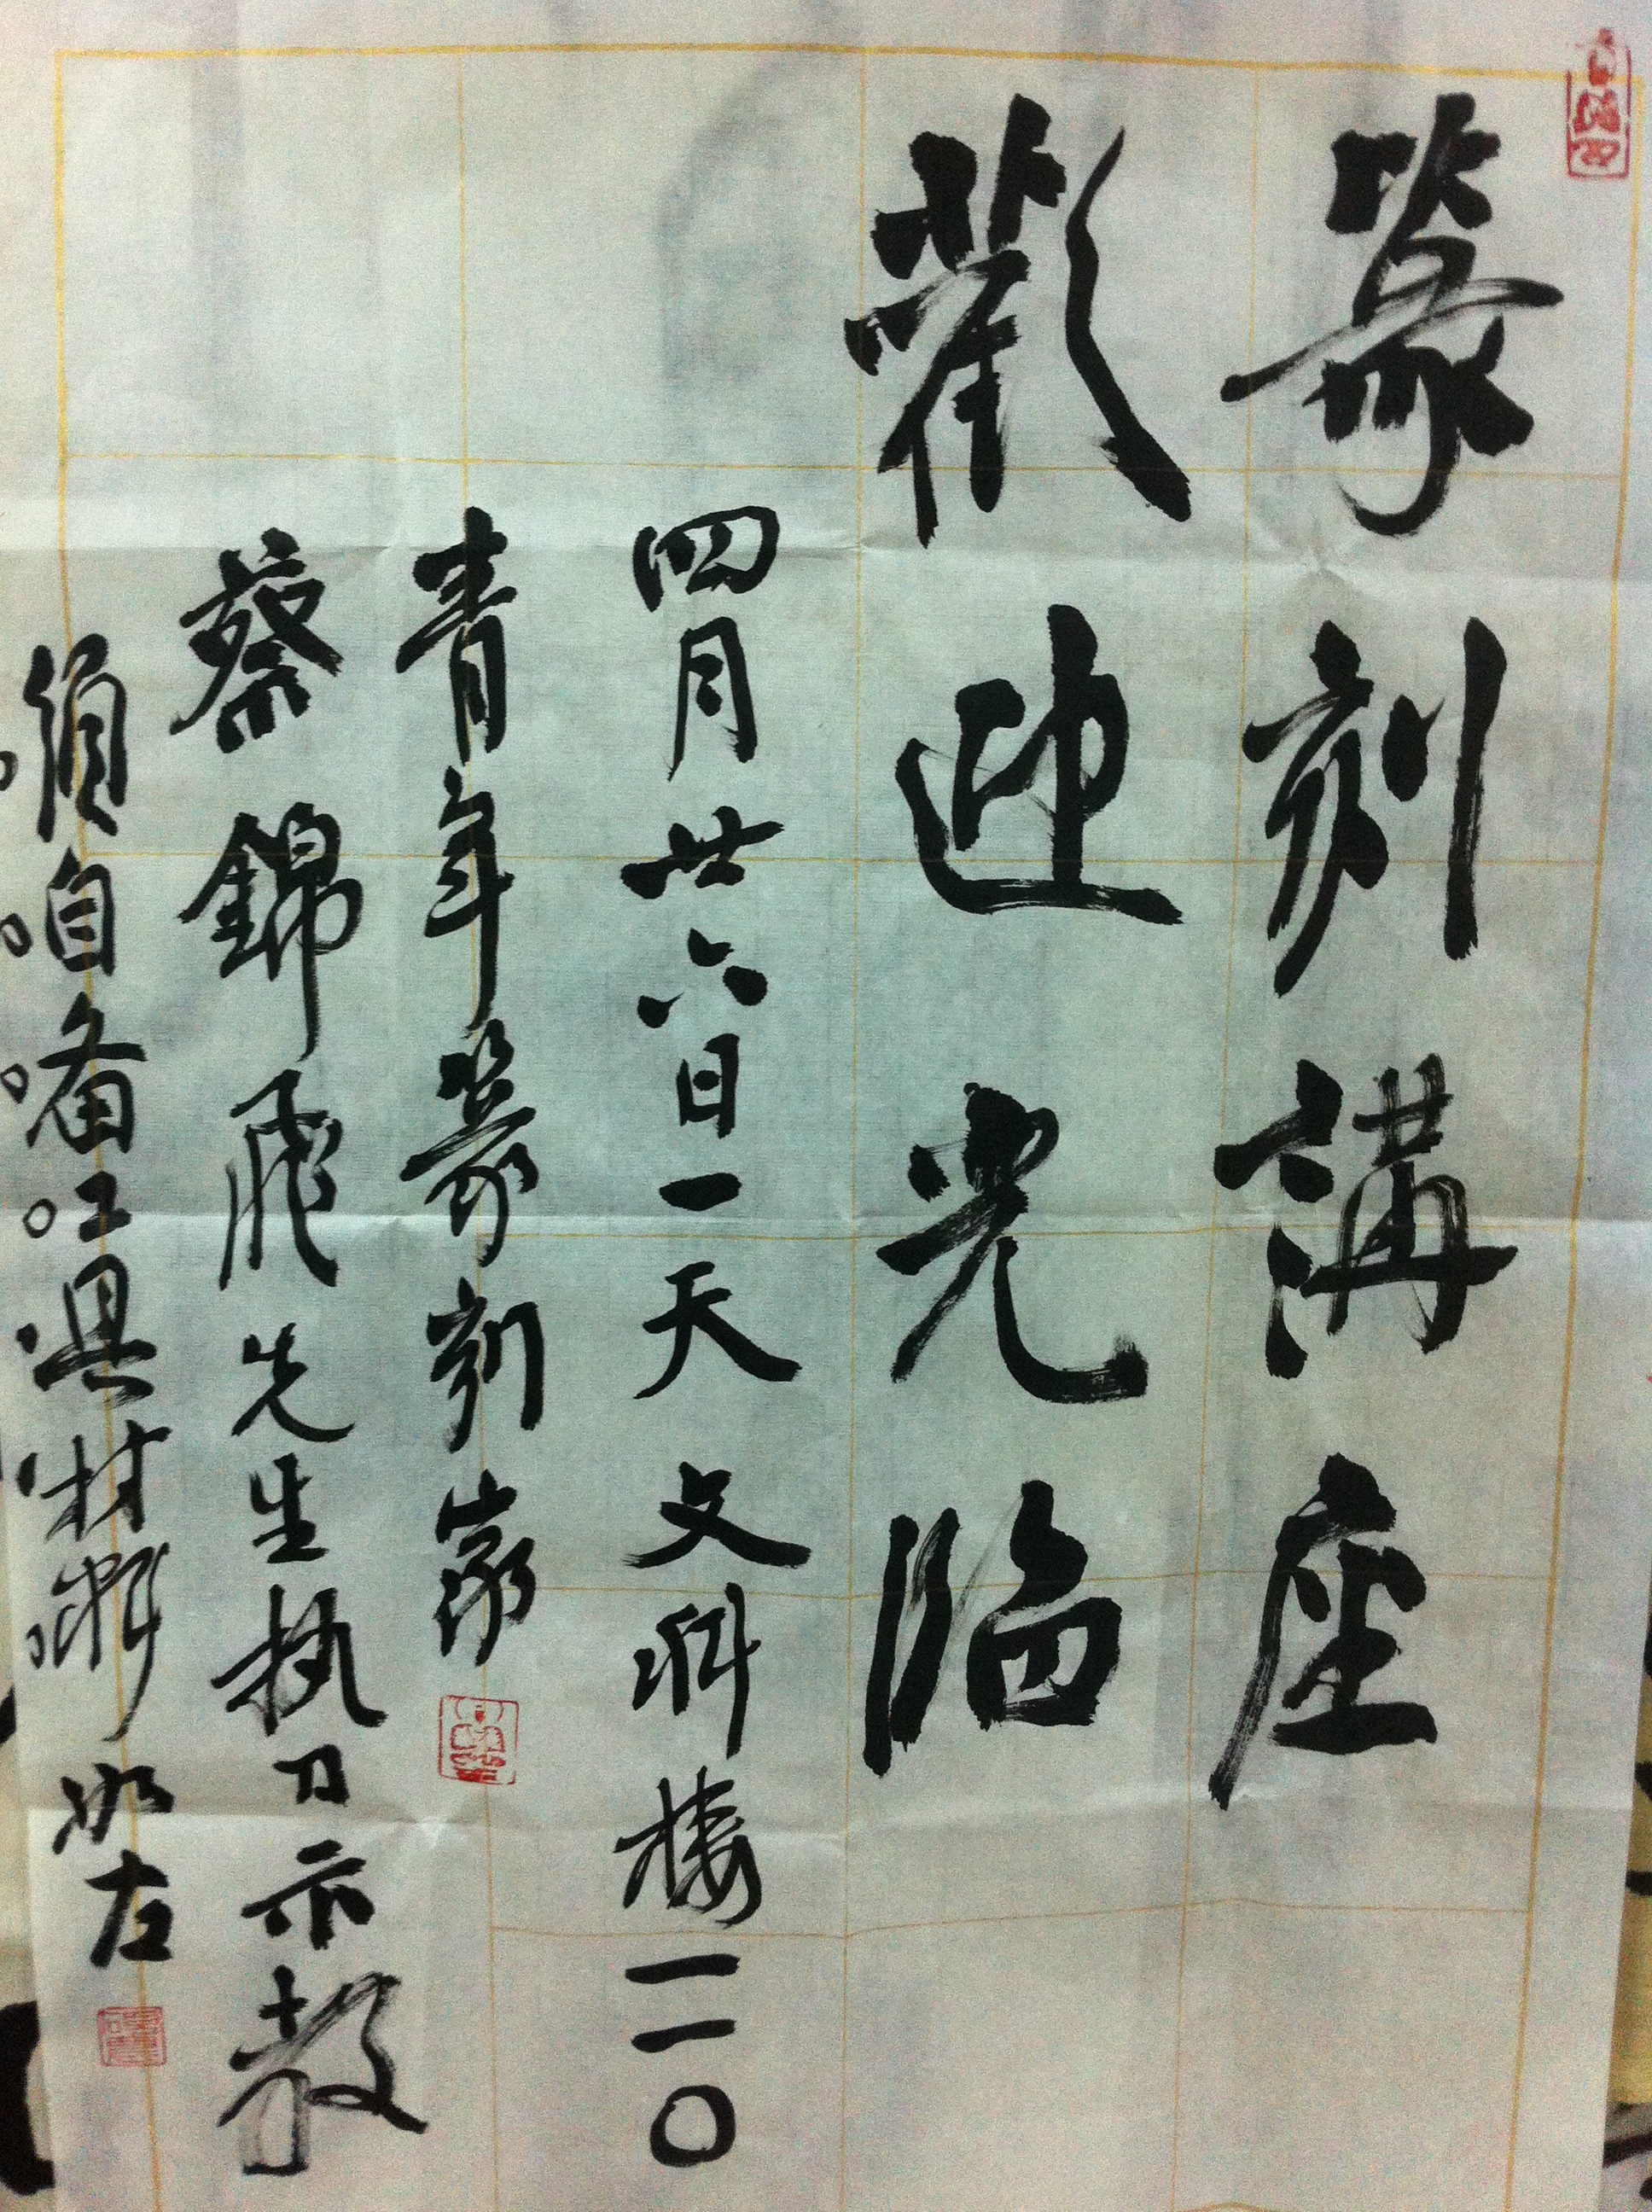 篆刻講座
歡迎光臨
四月廿六日一天文科樓一一〇
青年篆刻家
蔡錦飛先生執刀示教
須自备工具材料如左